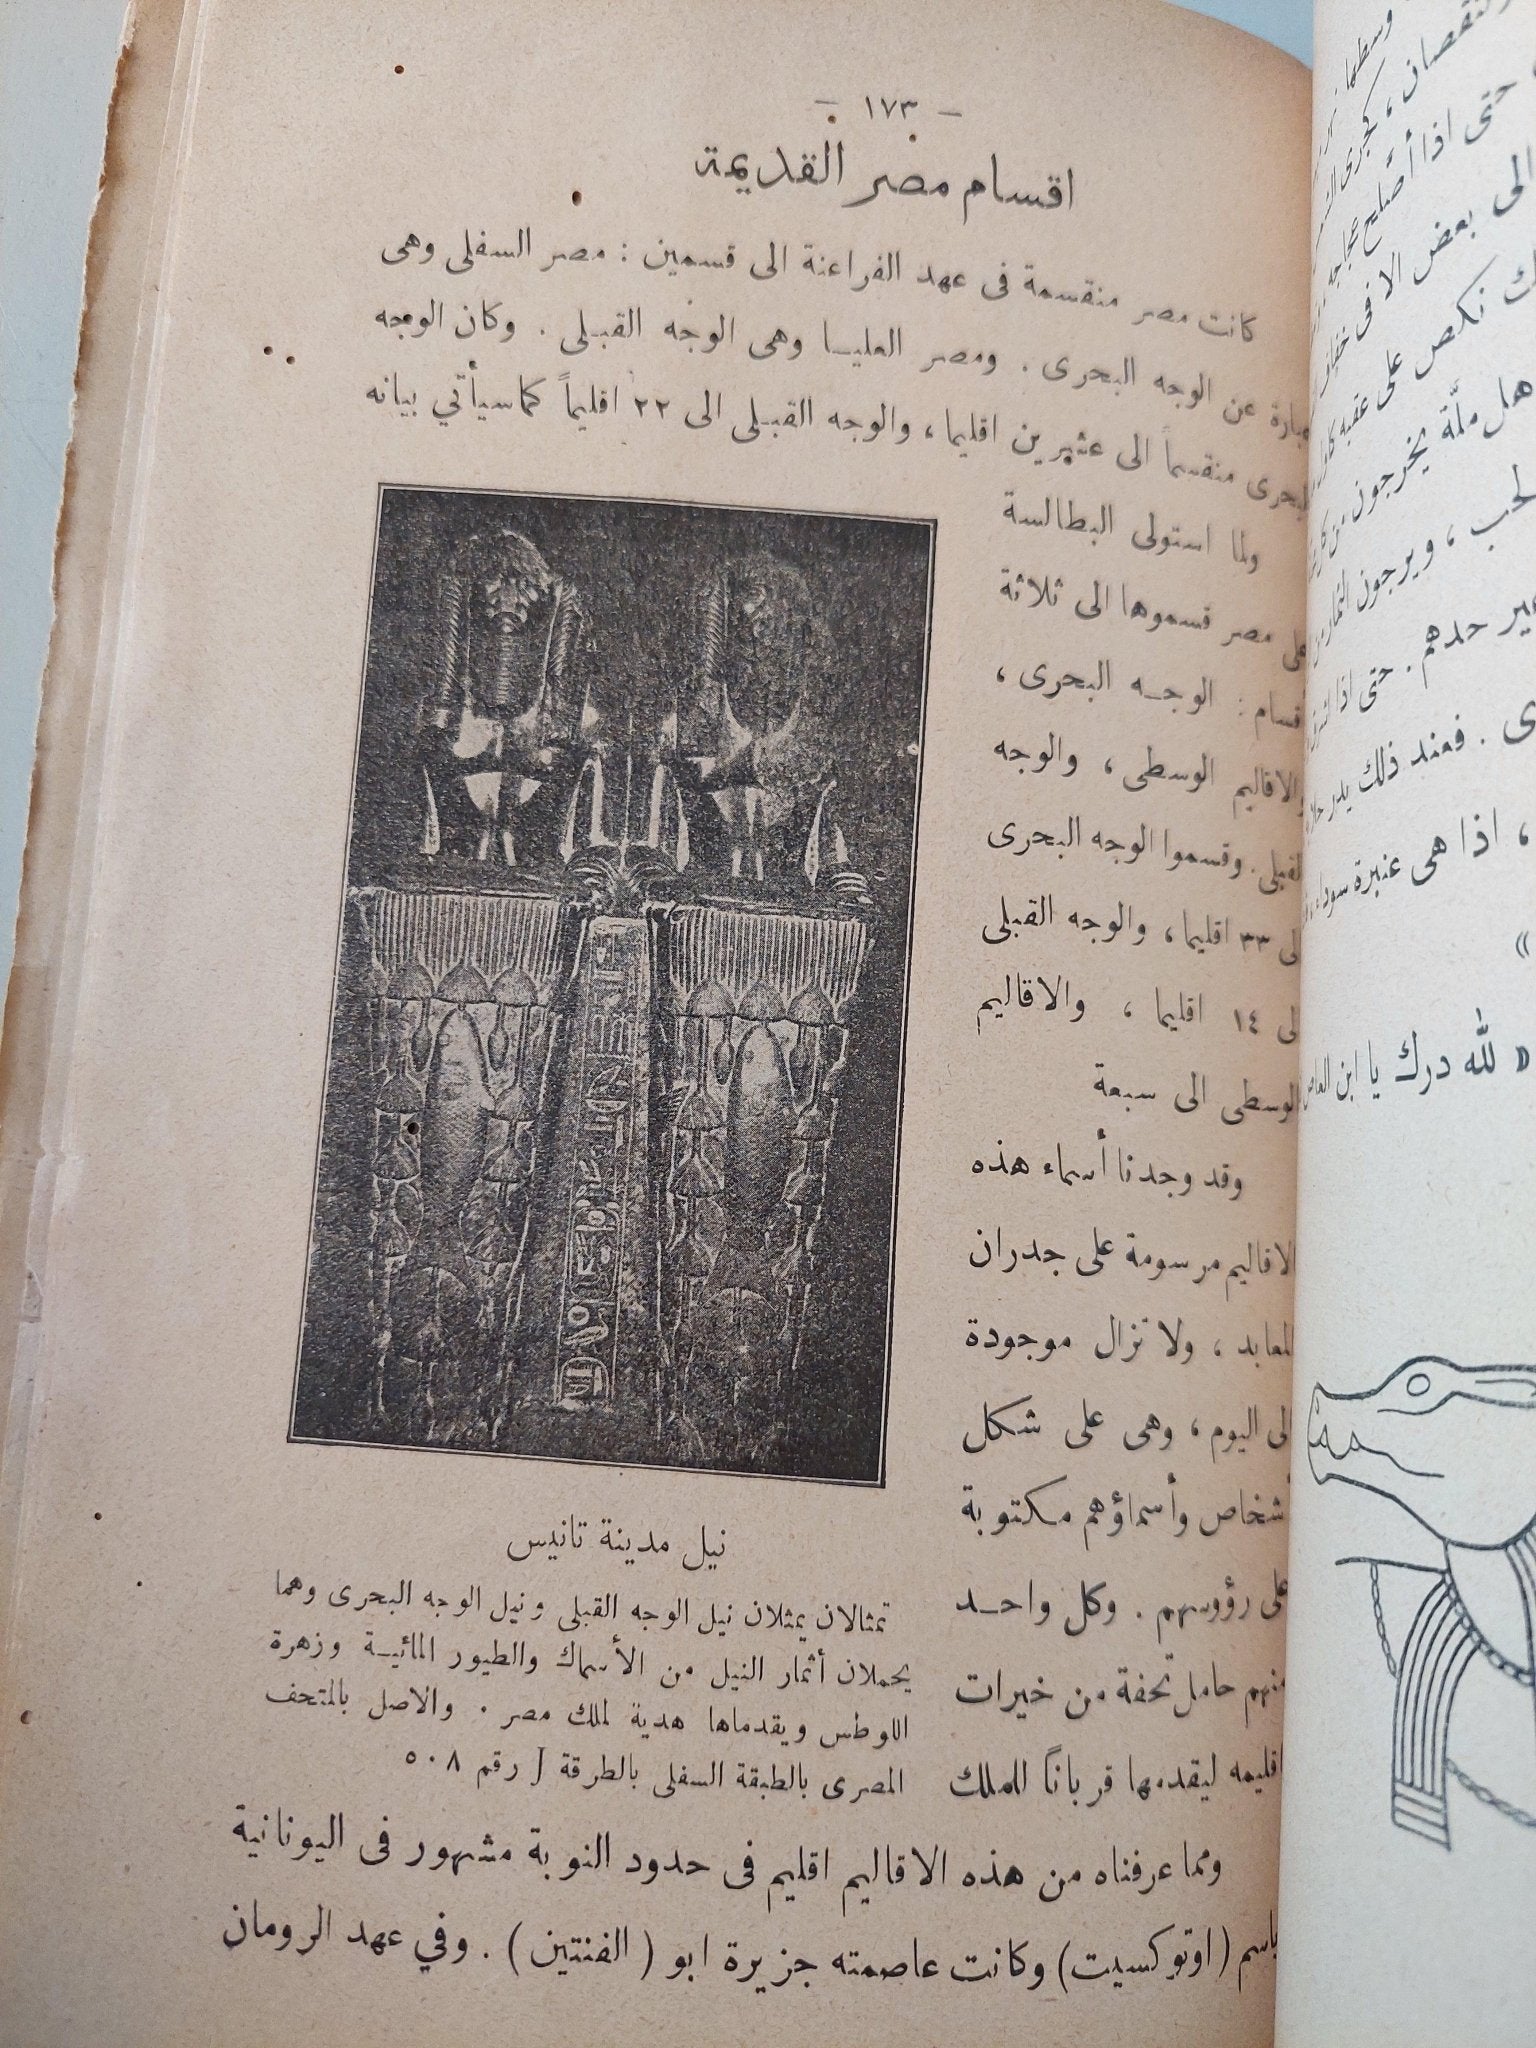 — ١٧٣ —
اقسام مصر القديمة
كانت مصر منقسمة فى عهد الفراعنة الى قسمين : مصر السفلى وهى
عبارة عن الوجه البحرى . ومصر العليا وهى الوجه القبلى . وكان الوجه
البحرى منقسماً الى عشرين اقليما ، والوجه القبلى الى ٢٢ اقليماً كماسيأتي بيانه
ولما استولى البطالسة
على مصر قسموها الى ثلاثة
اقسام : الوجه البحرى ،
والاقاليم الوسطى ، والوجه
القبلى . وقسموا الوجه البحرى
الى ٣٣ اقليما ، والوجه القبلى
الى ١٤ اقليما ، والاقاليم
الوسطى الى سبعة
وقد وجدنا أسماء هذه
الاقاليم مرسومة على جدران
المعابد ، ولا تزال موجودة
الى اليوم ، وهى على شكل
أشخاص وأسماؤهم مكتوبة
على رؤوسهم . وكل واحد
منهم حامل تحفة من خيرات
اقليمه ليقدمها قرباناً للملك
نيل مدينة تانيس
تمثالان يمثلان نيل الوجه القبلى ونيل الوجه البحرى وهما
يحملان أثمار النيل من الأسماك والطيور المائية وزهرة
اللوطس ويقدماها هدية لملك مصر . والاصل بالمتحف
المصرى بالطبقة السفلى بالطرقة J رقم ٥٠٨
ومما عرفناه من هذه الاقاليم اقليم فى حدود النوبة مشهور فى اليونانية
باسم ( اوتوكسيت ) وكانت عاصمته جزيرة ابو ( الفنتين ) . وفي عهد الرومان
حتى اذا
الى بعض الا
نكص على عقبه
ملّة يخرجون من
، ويرجون الثمار
حدهم . حتى اذا
. فعند ذلك يدر
، اذا هى عنبرة سوداء
»
« لله درك يا ابن العاص